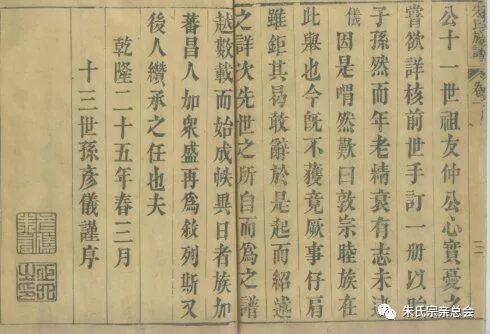 朱氏族譜 卷一序
公十一世祖友仲公心實憂之
嘗欲詳核前世手訂一册以貽
子孫然而年老精衰有志未逮
儀因是喟然歎曰敦宗睦族在
此舉也今旣不獲竟厥事仔肩
雖鉅其曷敢辭於是起而紹述
之詳次先世之所自而爲之譜
越數載而始成帙異日者族加
蕃昌人加衆盛再爲敍列斯又
後人纘承之任也夫
乾隆二十五年春三月
十三世孫彥儀謹序
朱氏宗亲总会